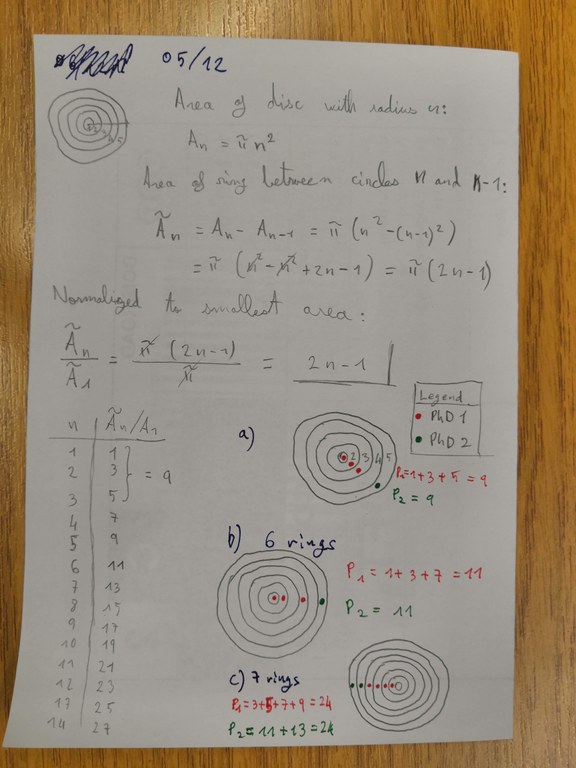 05/12
Area of disc with radius n:
An = π n²
Area of ring between circles n and n-1:
Ãn = An - An-1 = π (n² - (n-1)²)
= π (n² - n² + 2n - 1) = π (2n - 1)
Normalized to smallest area:
Ãn / Ã1 = π (2n - 1) / π = 2n - 1
n Ãn/A1
1 1
2 3
3 5
= 9
4 7
5 9
6 11
7 13
8 15
9 17
10 19
11 21
12 23
13 25
14 27
Legend
PhD 1
PhD 2
a)
2 3 4 5
P1 = 1 + 3 + 5 = 9
P2 = 9
b) 6 rings
P1 = 1 + 3 + 7 = 11
P2 = 11
c) 7 rings
P1 = 3 + 5 + 7 + 9 = 24
P2 = 11 + 13 = 24